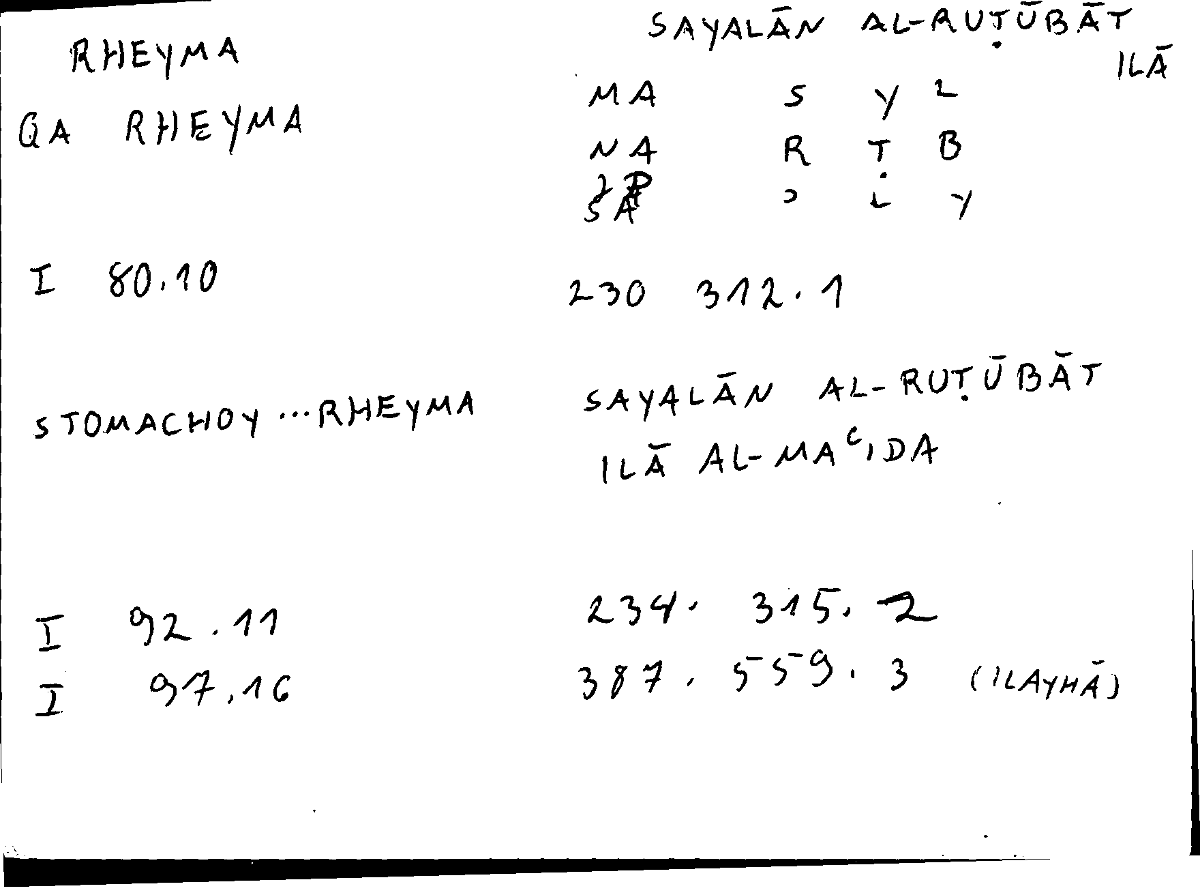 RHEYMA SAYALĀN AL-RUṬŪBĀT
ILĀ
QA RHEYMA MA S Y L
NA R Ṭ B
SA Ɔ L Y
I 80.10 230 312.1
STOMACHOY ... RHEYMA SAYALĀN AL-RUṬŪBĀT
ILĀ AL-MAʿIDA
I 92.11 234. 315. 2
I 97.16 387. 559. 3 (ILAYHĀ)